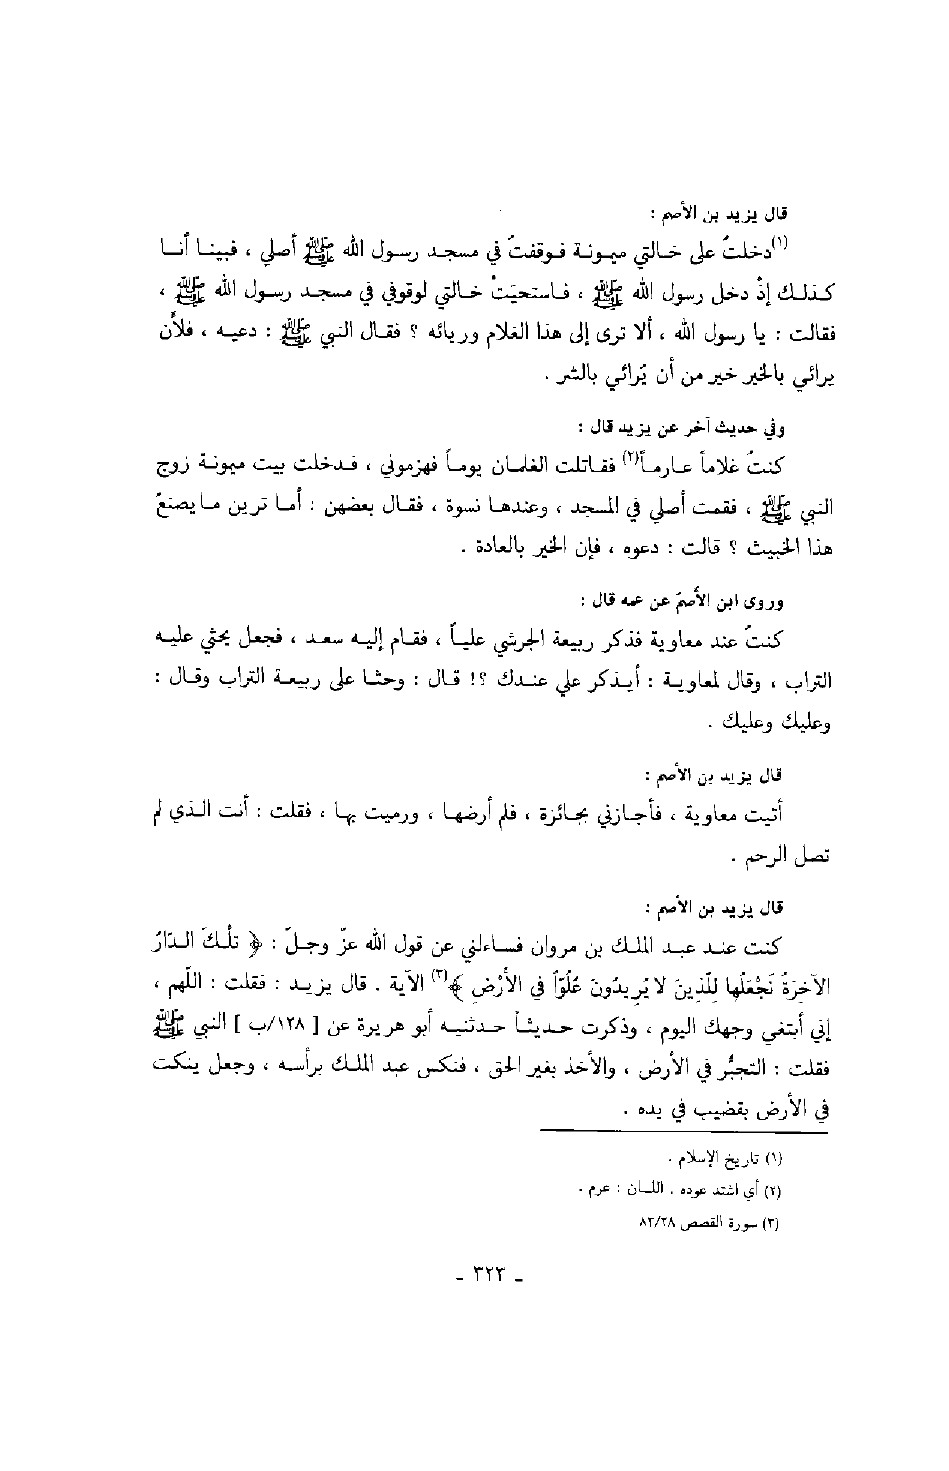 قال يزيد بن الأصم :
(١)دخلتُ على خالتي ميمونة فوقفتُ في مسجد رسول الله ﷺ أصلي ، فبينا أنا
كذلك إذْ دخل رسول الله ﷺ ، فاستحيَتْ خالتي لوقوفي في مسجد رسول الله ﷺ ،
فقالت : يا رسول الله ، ألا ترى إلى هذا الغلام وريائه ؟ فقال النبي ﷺ : دعيه ، فلأَن
يرائي بالخير خير من أن يُرائي بالشر .
وفي حديث آخر عن يزيد قال :
كنتُ غلاماً عارماً(٢) فقاتلت الغلمان يوماً فهزموني ، فدخلت بيت ميمونة زوج
النبي ﷺ ، فقمت أصلي في المسجد ، وعندها نسوة ، فقال بعضهن : أما ترين ما يصنعُ
هذا الخبيث ؟ قالت : دعوه ، فإن الخير بالعادة .
وروى ابن الأصمّ عن عمه قال :
كنتُ عند معاوية فذكر ربيعة الجرشي علياً ، فقام إليه سعد ، فجعل يحثي عليه
التراب ، وقال لمعاوية : أيذكر علي عندك ؟! قال : وحثا على ربيعة التراب وقال :
وعليك وعليك .
قال يزيد بن الأصم :
أتيت معاوية ، فأجازني بجائزة ، فلم أرضها ، ورميت بها ، فقلت : أنت الذي لم
تصل الرحم .
قال يزيد بن الأصم :
كنت عند عبد الملك بن مروان فساءلني عن قول الله عزّ وجلّ : ﴿ تلْكَ الدّارُ
الآخِرَةُ نَجْعَلُها لِلّذِينَ لا يُرِيدُونَ عُلُوّاً في الأَرْضِ ﴾(٣) الآية . قال يزيد : فقلت : اللّهم ،
إني أبتغي وجهك اليوم ، وذكرت حديثاً حدثنيه أبو هريرة عن [ ١٢٨/ب ] النبي ﷺ
فقلت : التجبُّر في الأرض ، والأخذ بغير الحق ، فنكس عبد الملك برأسه ، وجعل ينكت
في الأرض بقضيب في يده .
(١) تاريخ الإسلام .
(٢) أي اشتد عوده . اللسان : عرم .
(٣) سورة القصص ٨٣/٢٨
- ٣٢٣ -